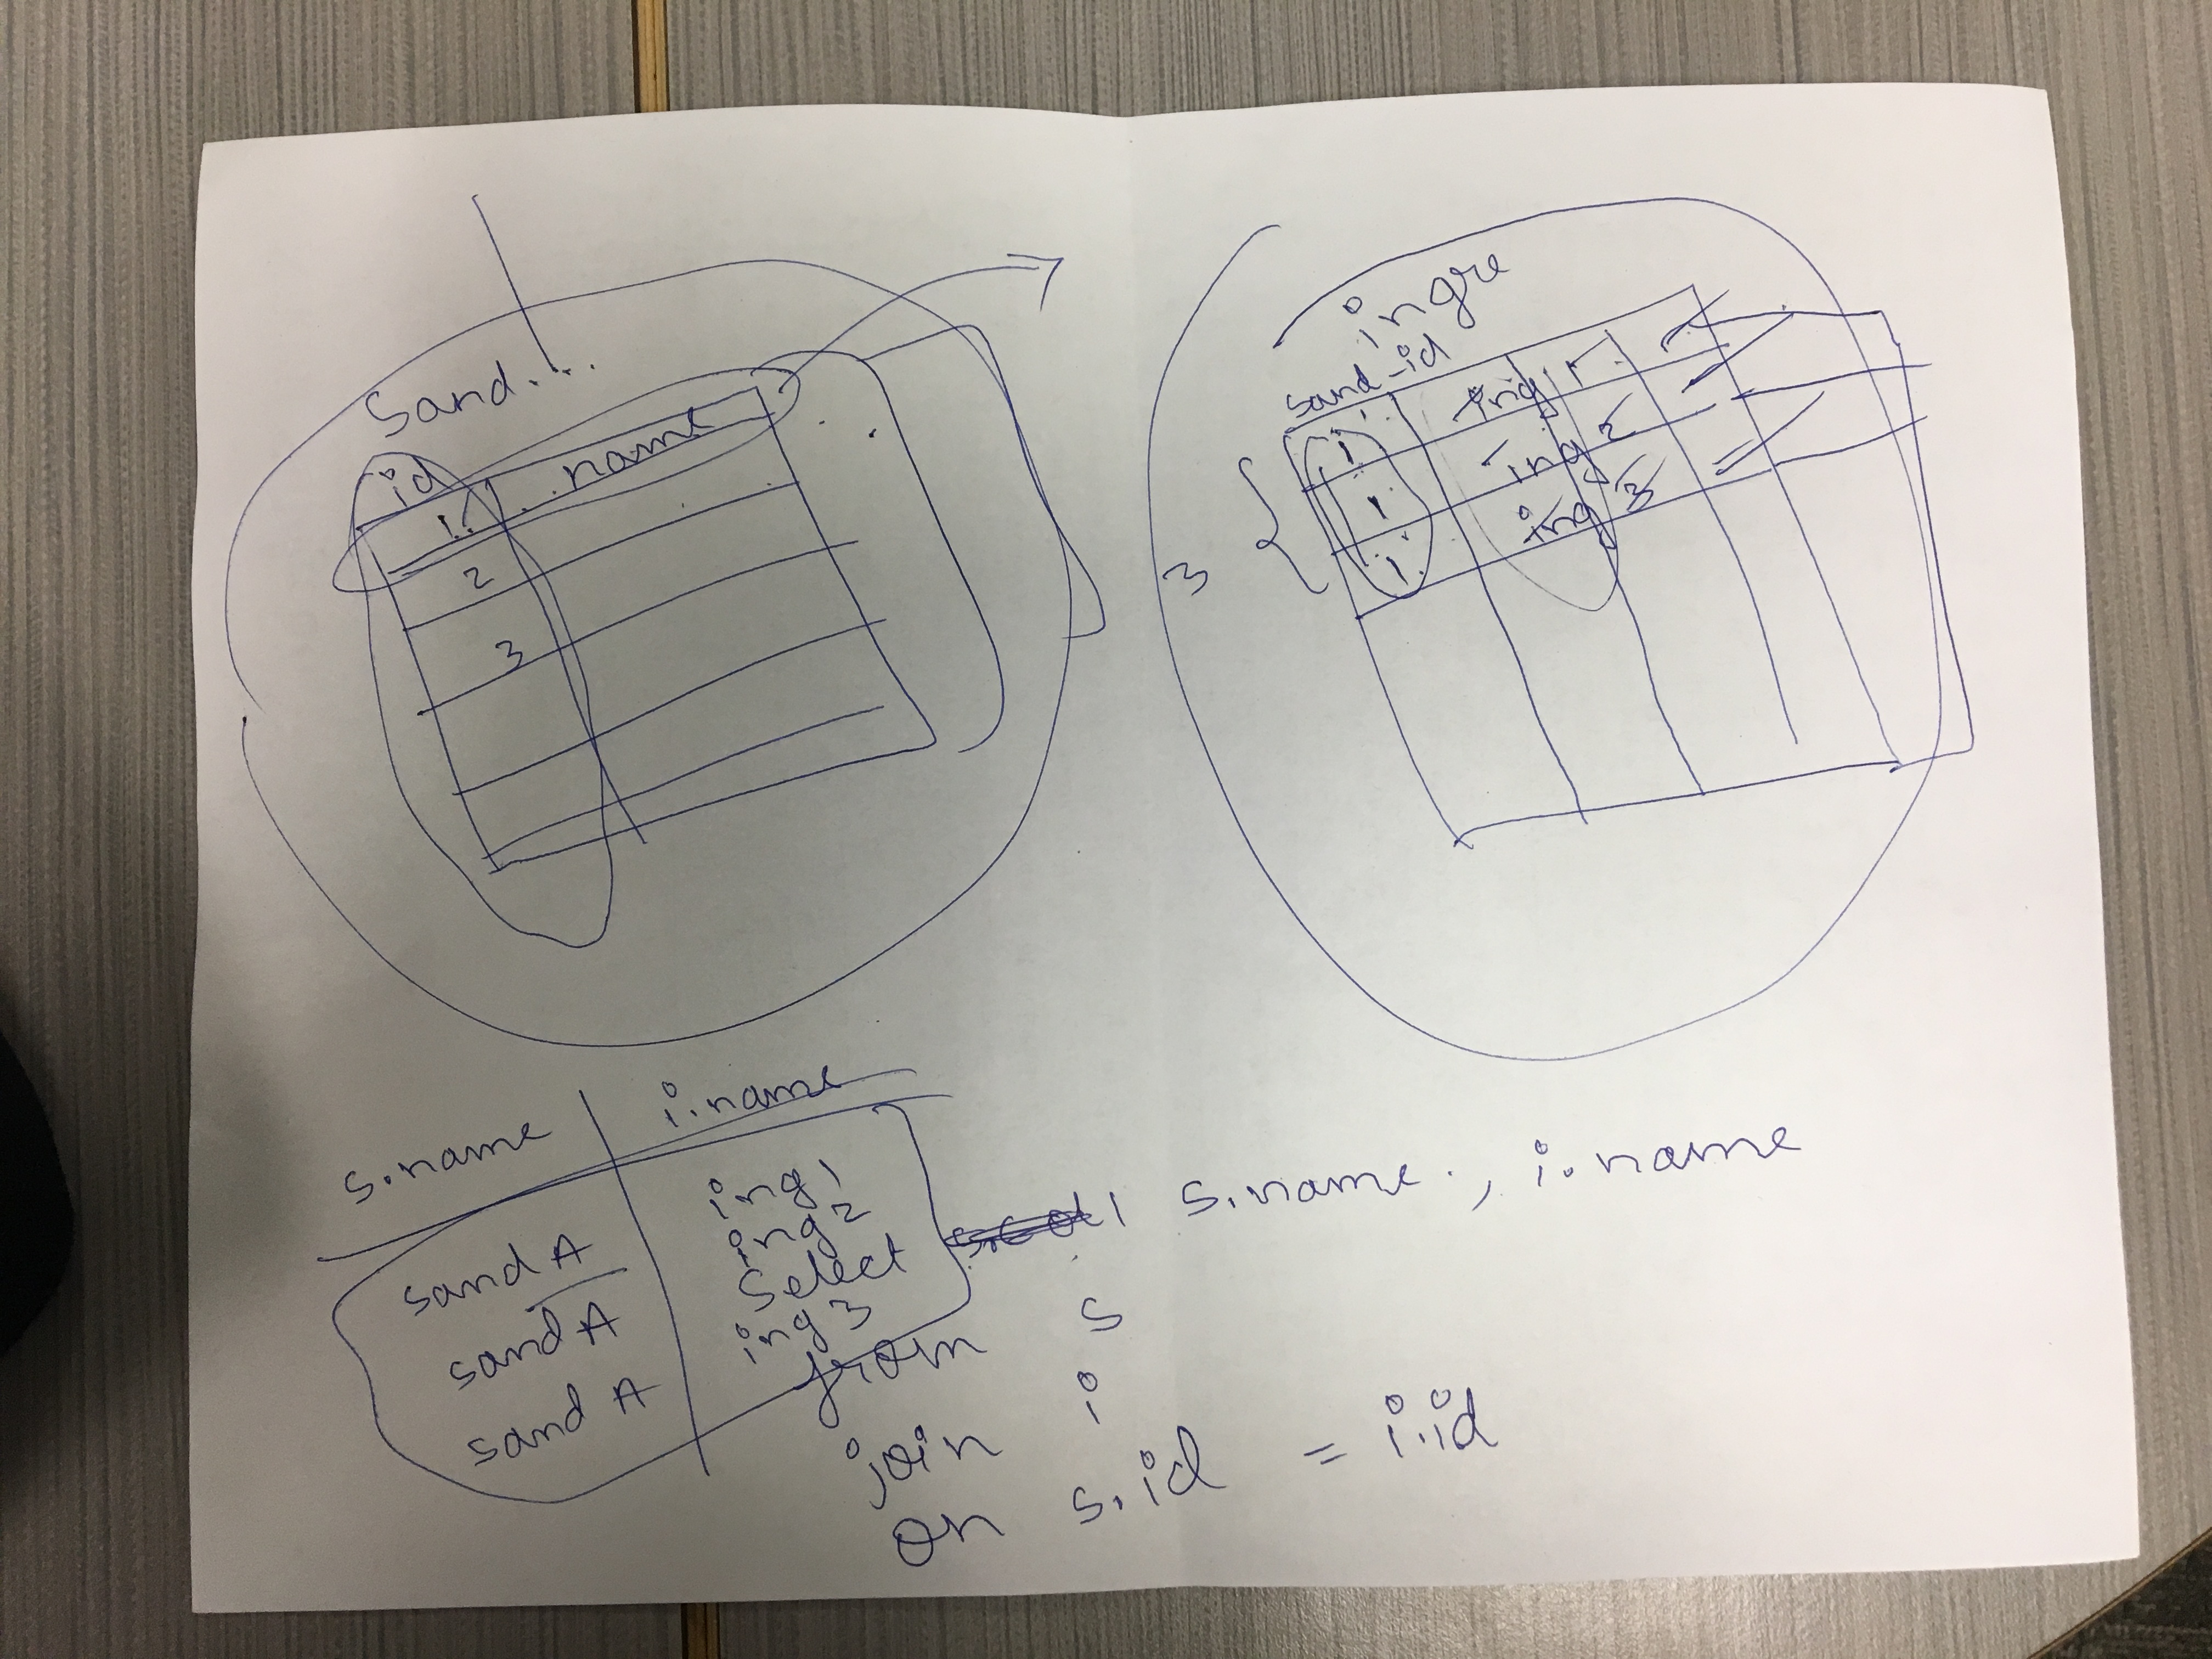 Sand...
id name
1
2
3
ingre
sand_id
3
1 ing 1
1 ing 2
1 ing 3
s.name i.name
sand A ing 1
sand A ing 2
sand A ing 3
select s.name, i.name
from s
join i
on s.id = i.id